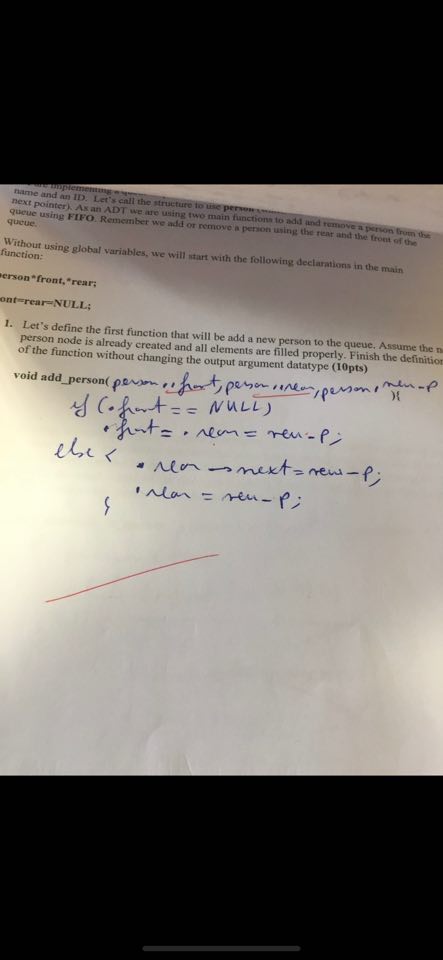 are implementing a
name and an ID. Let's call the structure to use person
next pointer). As an ADT we are using two main functions to add and remove a person from the
queue using FIFO. Remember we add or remove a person using the rear and the front of the
queue.
Without using global variables, we will start with the following declarations in the main
function:
erson*front,*rear;
ont=rear=NULL;
1. Let's define the first function that will be add a new person to the queue. Assume the n
person node is already created and all elements are filled properly. Finish the definition
of the function without changing the output argument datatype (10pts)
void add_person(person **front, person **rear, person * new-p ){
if (*front == NULL)
*front = *rear = new-p;
else {
*rear → next = new-p;
*rear = new-p;
}